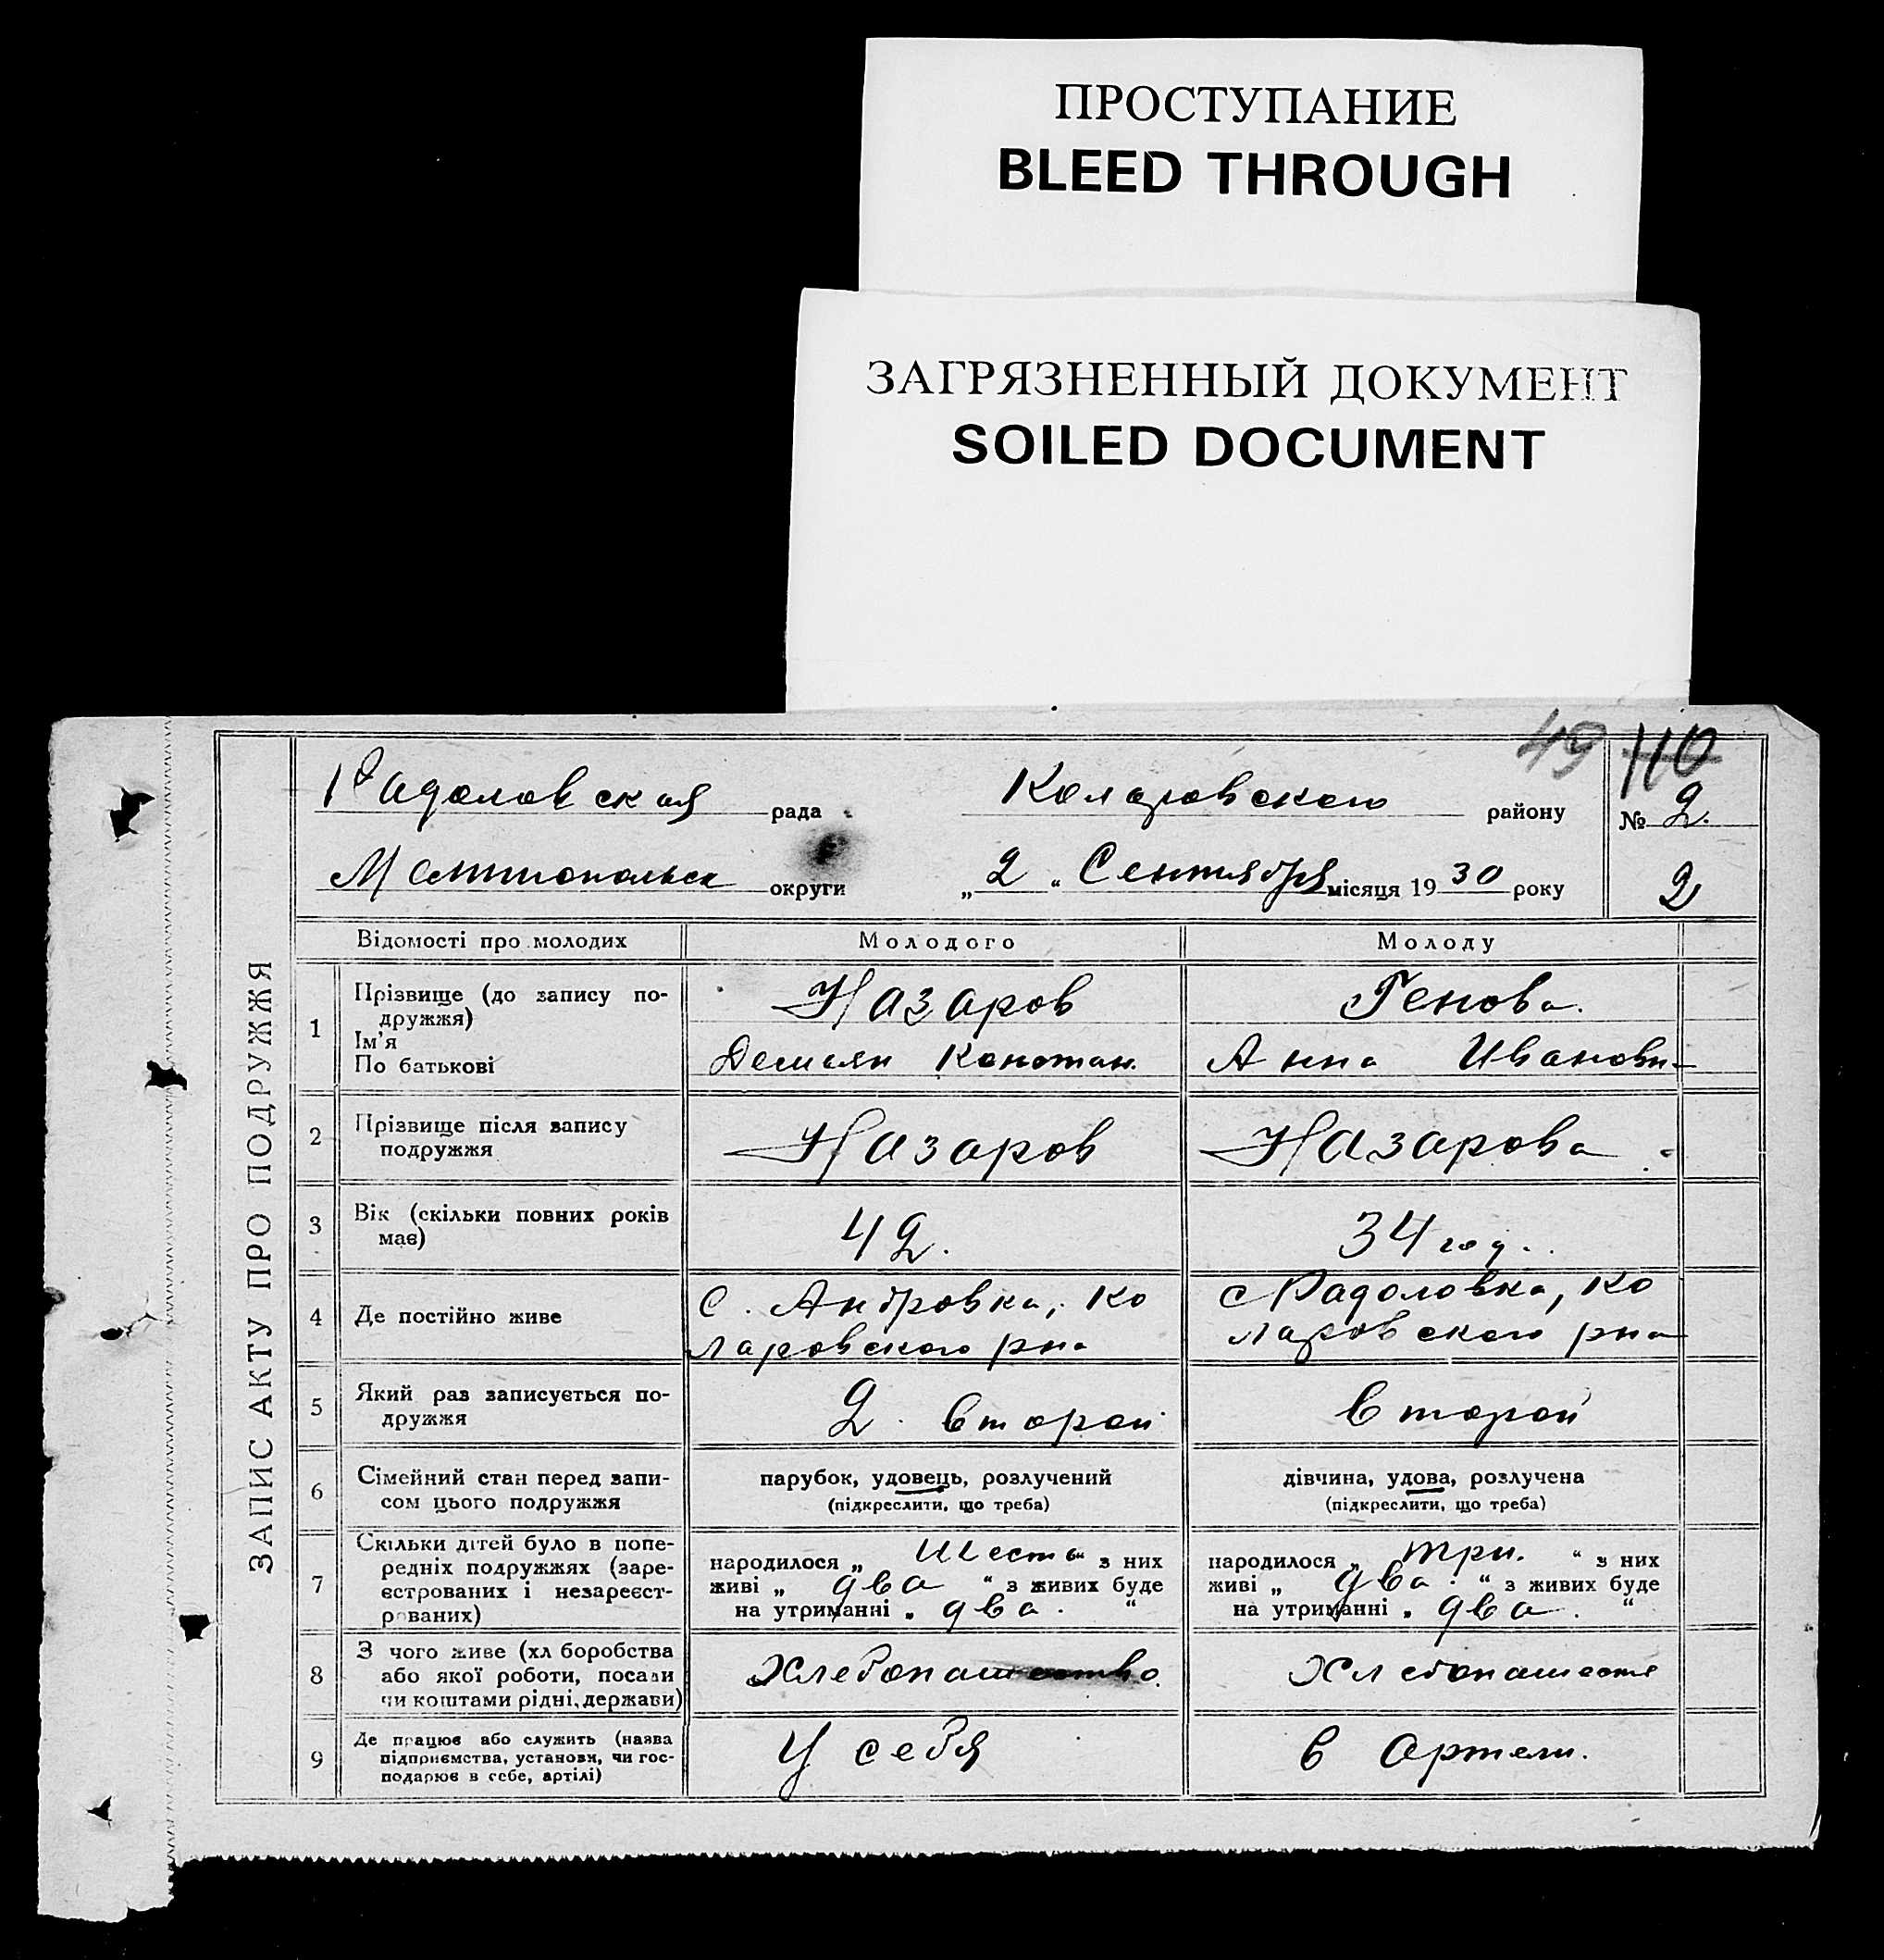 ПРОСТУПАНИЕ
BLEED THROUGH
ЗАГРЯЗНЕННЫЙ ДОКУМЕНТ
SOILED DOCUMENT
49 110
ЗАПИС АКТУ ПРО ПОДРУЖЖЯ
Радоловская рада Коларовского району № 2.
округи „ 2 " Сентября місяця 19 30 року 2
Відомості про молодих Молодого Молоду
1 Прізвище (до запису по-
дружжя)
Ім'я
По батькові
Назаров Генова.
Демьян Констан. Анна Иванови
2 Прізвище після запису
подружжя
Назаров Назарова
3 Вік (скільки повних років
має)
42. 34 год.
4 Де постійно живе
с. Андровка, Ко
ларовского рна
с Радоловка, Ко
ларовского рна
5 Який раз записується по-
дружжя
2. второй второй
6 Сімейний стан перед запи-
сом цього подружжя
парубок, удовець, розлучений
(підкреслити, що треба)
дівчина, удова, розлучена
(підкреслити, що треба)
7 Скільки дітей було в попе-
редніх подружжях (заре-
єстрованих і незареєст-
рованих)
народилося „ Шесть " з них
живі „ два " з живих буде
на утриманні „ два. "
народилося „ три. " з них
живі „ два. " з живих буде
на утриманні „ два. "
8 З чого живе (хл боробства
або якої роботи, посади
чи коштами рідні, держави)
Хлебопашество. Хлебопашест
9 Де працює або служить (назва
підприємства, установи, чи гос-
подарює в себе, артілі)
У себя в Артели.